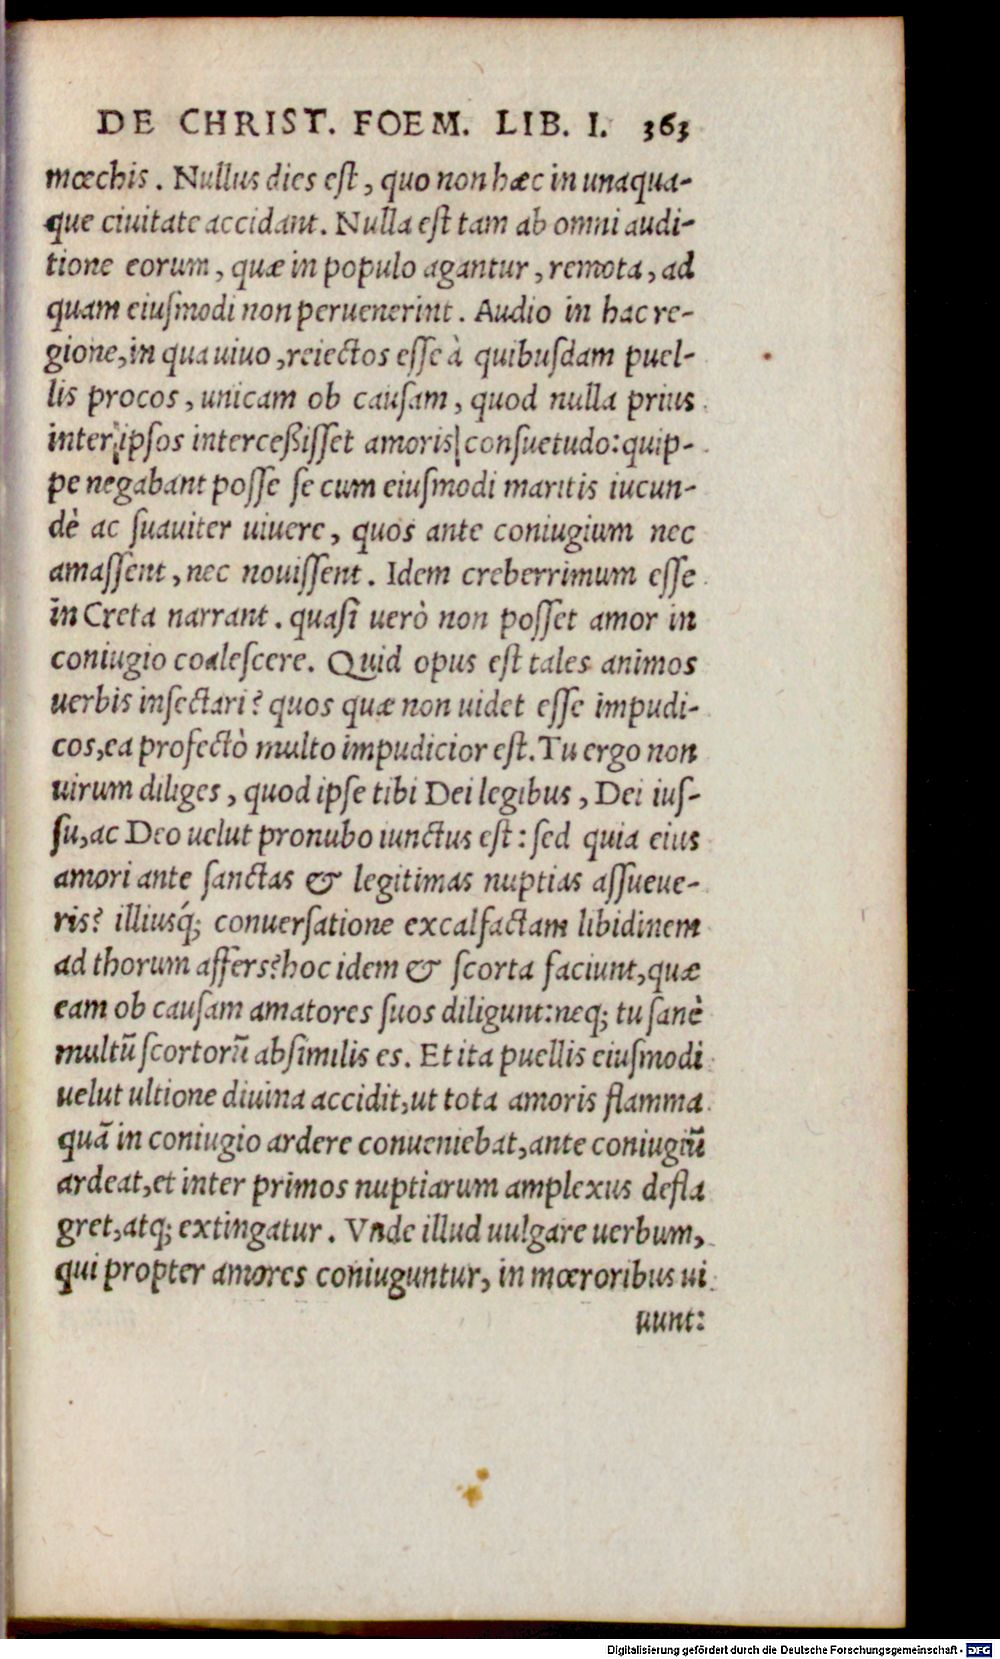 DE CHRIST. FOEM. LIB. I. 363
mœchis. Nullus dies eſt, quo non hæc in unaqua-
que ciuitate accidant. Nulla eſt tam ab omni audi-
tione eorum, quæ in populo agantur, remota, ad
quam eiuſmodi non peruenerint. Audio in hac re-
gione, in qua uiuo, reiectos eſſe à quibuſdam puel-
lis procos, unicam ob cauſam, quod nulla prius
inter ipſos interceßiſſet amoris conſuetudo: quip-
pe negabant poſſe ſe cum eiuſmodi maritis iucun-
dè ac ſuauiter uiuere, quos ante coniugium nec
amaſſent, nec nouiſſent. Idem creberrimum eſſe
in Creta narrant. quaſi uerò non poſſet amor in
coniugio coaleſcere. Quid opus eſt tales animos
uerbis inſectari? quos quæ non uidet eſſe impudi-
cos, ea profectò multo impudicior eſt. Tu ergo non
uirum diliges, quod ipſe tibi Dei legibus, Dei iuſ-
ſu, ac Deo uelut pronubo iunctus eſt: ſed quia eius
amori ante ſanctas & legitimas nuptias aſſueue-
ris? illiusq́; conuerſatione excalfactam libidinem
ad thorum affers? hoc idem & ſcorta faciunt, quæ
eam ob cauſam amatores ſuos diligunt: neq; tu ſanè
multũ ſcortorũ abſimilis es. Et ita puellis eiuſmodi
uelut ultione diuina accidit, ut tota amoris flamma
quã in coniugio ardere conueniebat, ante coniugiũ
ardeat, et inter primos nuptiarum amplexus defla
gret, atq; extingatur. Vnde illud uulgare uerbum,
qui propter amores coniuguntur, in mœroribus ui
uunt:
Digitalisierung gefördert durch die Deutsche Forschungsgemeinschaft - DFG